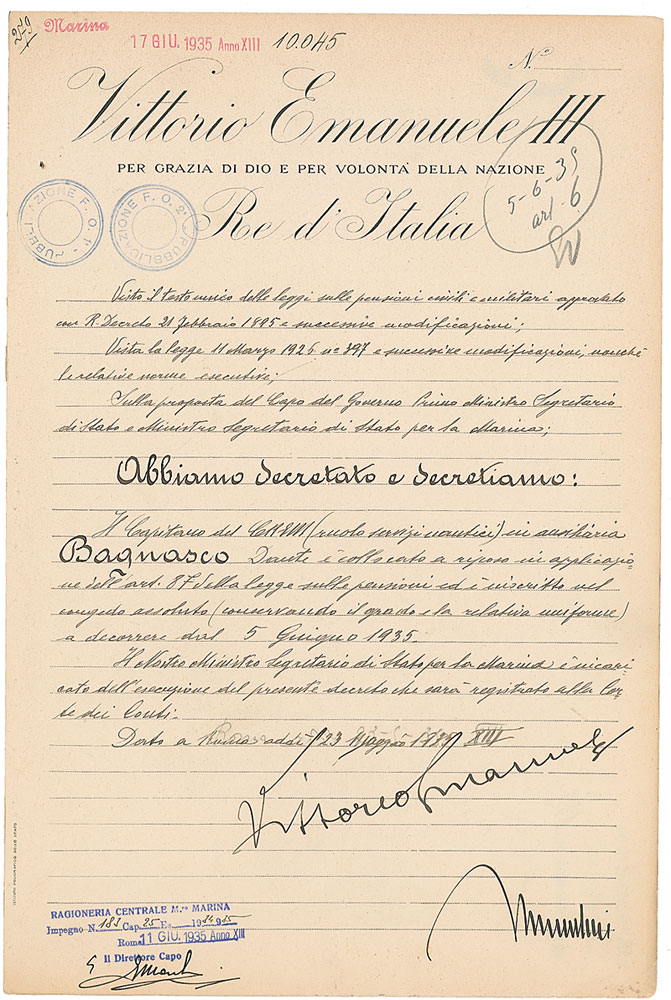 279
Marina
17 GIU. 1935 Anno XIII 10.045
N.º
Vittorio Emanuele III
PER GRAZIA DI DIO E PER VOLONTA' DELLA NAZIONE
5-6-35
art. 6
Re d'Italia
PUBBLICAZIONE F. O. 1ª
PUBBLICAZIONE F. O. 2ª
Visto il testo unico delle leggi sulle pensioni civili e militari approvato
con R. Decreto 21 Febbraio 1895 e successive modificazioni;
Vista la legge 11 Marzo 1926 nº 397 e successive modificazioni, nonchè
le relative norme esecutive;
Sulla proposta del Capo del Governo Primo Ministro Segretario
di Stato e Ministro Segretario di Stato per la Marina;
Abbiamo decretato e decretiamo:
Il Capitano del C.R.E.M. (ruolo servizi nautici) in ausiliaria
Bagnasco Dante è collocato a riposo in applicazio=
ne dell'art. 87 della legge sulle pensioni ed è inscritto nel
congedo assoluto (conservando il grado e la relativa uniforme)
a decorrere dal 5 Giugno 1935.
Il Nostro Ministro Segretario di Stato per la Marina è incari=
cato dell'esecuzione del presente decreto che sarà registrato alla Cor=
te dei Conti.
Dato a Roma addì 23 Maggio 1935 XIII
Vittorio Emanuele
Mussolini
ISTITUTO POLIGRAFICO DELLO STATO
RAGIONERIA CENTRALE M.ro MARINA
Impegno N. 183 Cap. 25 Es. 1934-935
Roma 11 GIU. 1935 Anno XIII
Il Direttore Capo